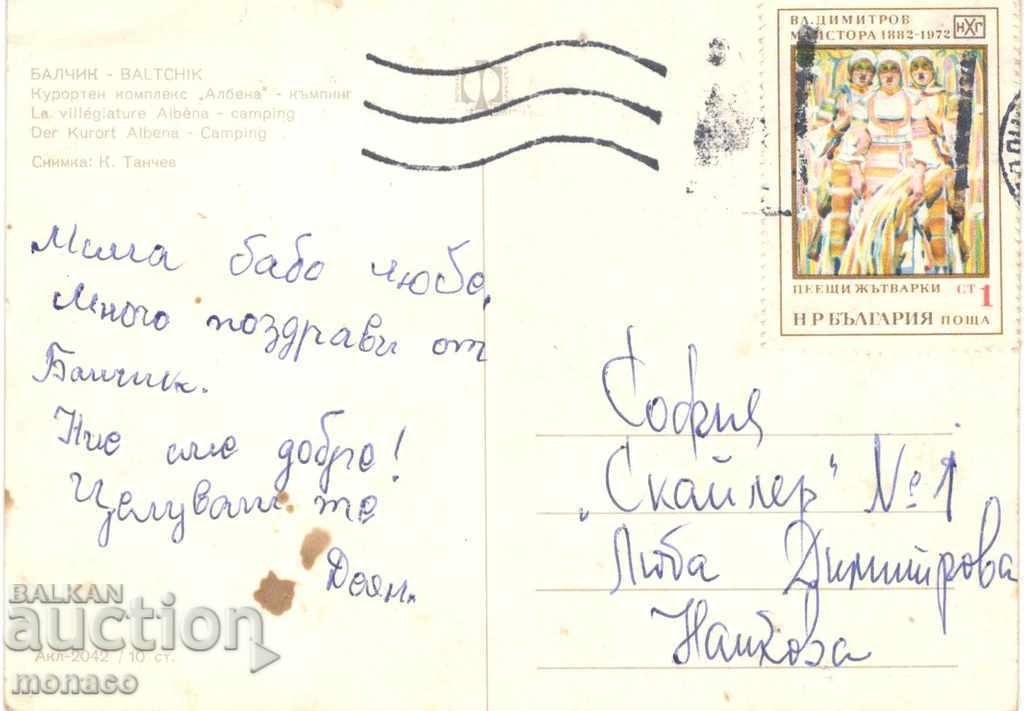 БАЛЧИК - BALTCHIK
Курортен комплекс „Албена" - къмпинг
La villégiature Albéna - camping
Der Kurort Albena - Camping
Снимка: К. Танчев
Мила бабо Люба,
Много поздрави от
Балчик.
Ние сме добре!
Целувам те
Деян.
Акл-2042 / 10 ст.
ВЛ. ДИМИТРОВ
МАЙСТОРА 1882-1972
НХГ
ПЕЕЩИ ЖЪТВАРКИ СТ 1
НР БЪЛГАРИЯ ПОЩА
София
„Скайлер" № 1
Люба Димитрова
Найкова
BALKAN
auction
monaco